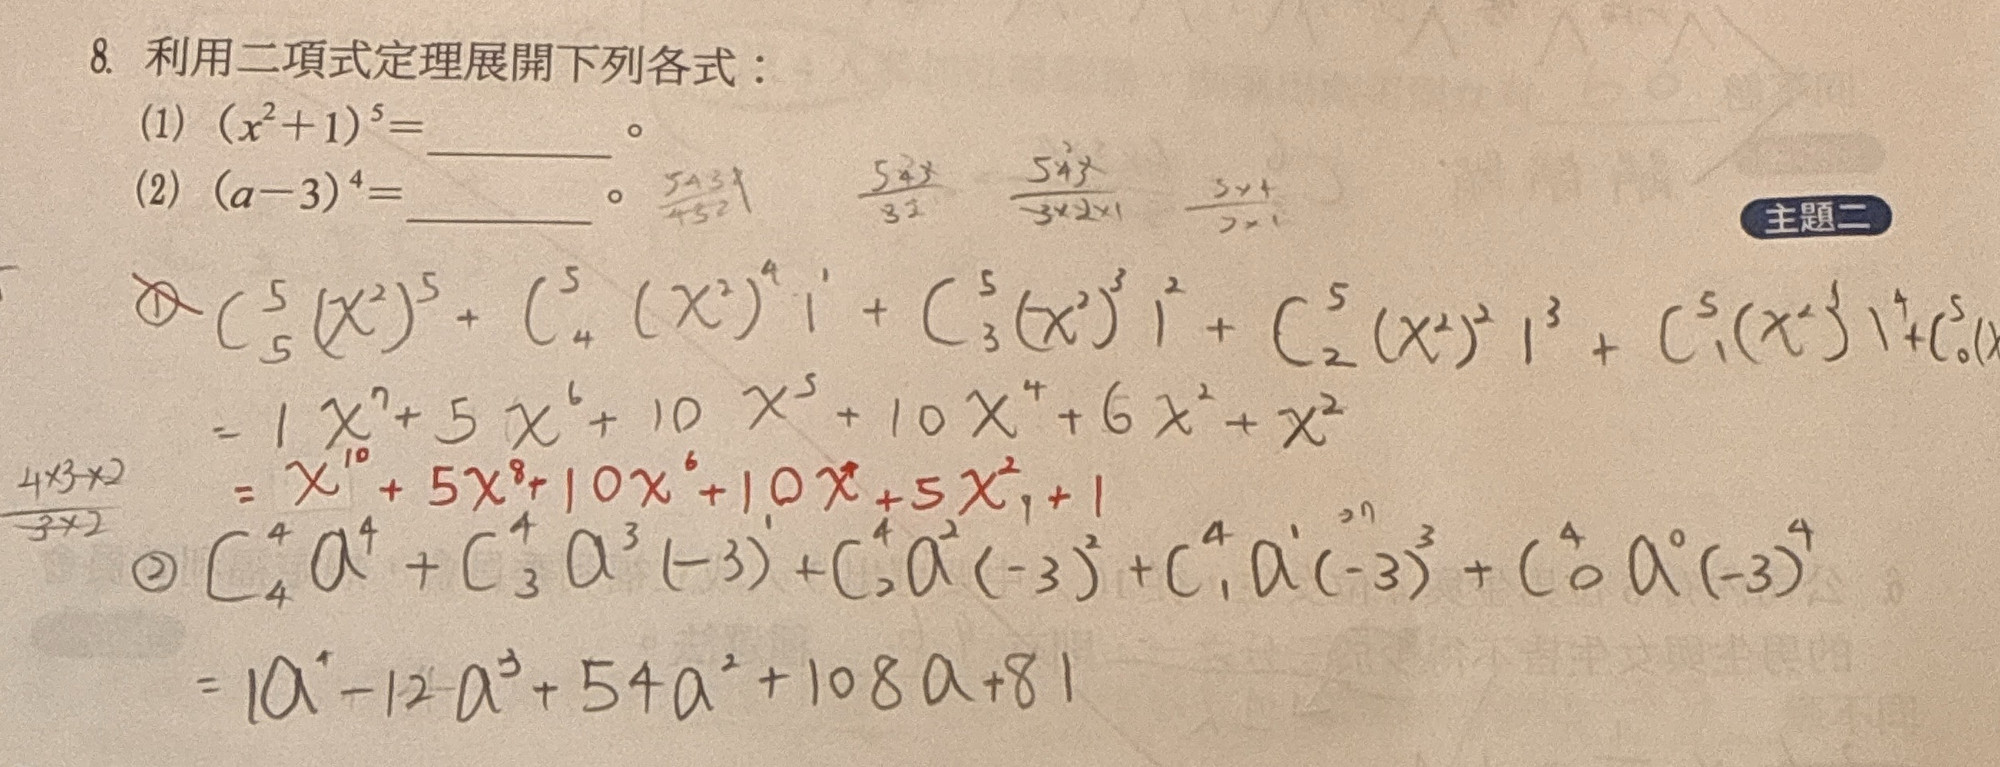 8. 利用二項式定理展開下列各式：
(1) (x²+1)⁵=______。
(2) (a−3)⁴=______。
543/32 543/3×2×1 5×4/2×1
主題二
① C⁵₅(x²)⁵ + C⁵₄(x²)⁴1¹ + C⁵₃(x²)³1² + C⁵₂(x²)²1³ + C⁵₁(x²)¹1⁴ + C⁵₀(x
= 1x⁷ + 5x⁶ + 10x⁵ + 10x⁴ + 6x² + x²
= x¹⁰ + 5x⁸ + 10x⁶ + 10x⁴ + 5x² + 1
4×3×2/3×2
② C⁴₄a⁴ + C⁴₃a³(−3)¹ + C⁴₂a²(−3)² + C⁴₁a¹(−3)³ + C⁴₀a⁰(−3)⁴
= 1a⁴ − 12a³ + 54a² + 108a + 81